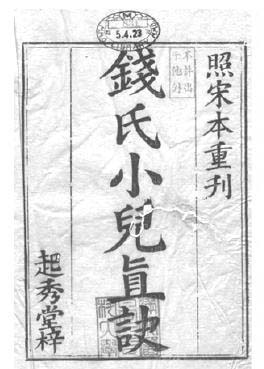 照宋本重刊
錢氏小兒直訣
起秀堂梓
5.4.23
不許出